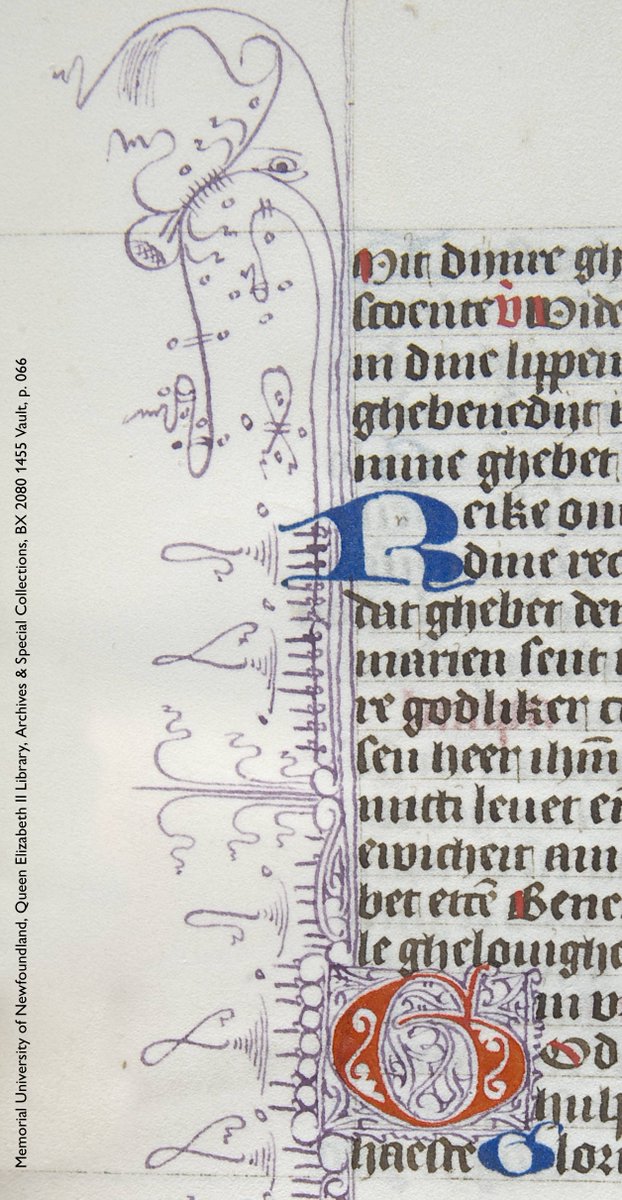 Memorial University of Newfoundland, Queen Elizabeth II Library, Archives & Special Collections, BX 2080 1455 Vault, p. 066
Mit dijnre gh
scoente
in dine lippen
ghebenedijt
mine ghebet
Reike on
dine rec
dat ghebet der
marien sent
re godliker
sen heer ihm̄
mitti leuet
ewicheit am
bet etcē Bene
le ghelouighe
G in
God
hulp
haeste Glori